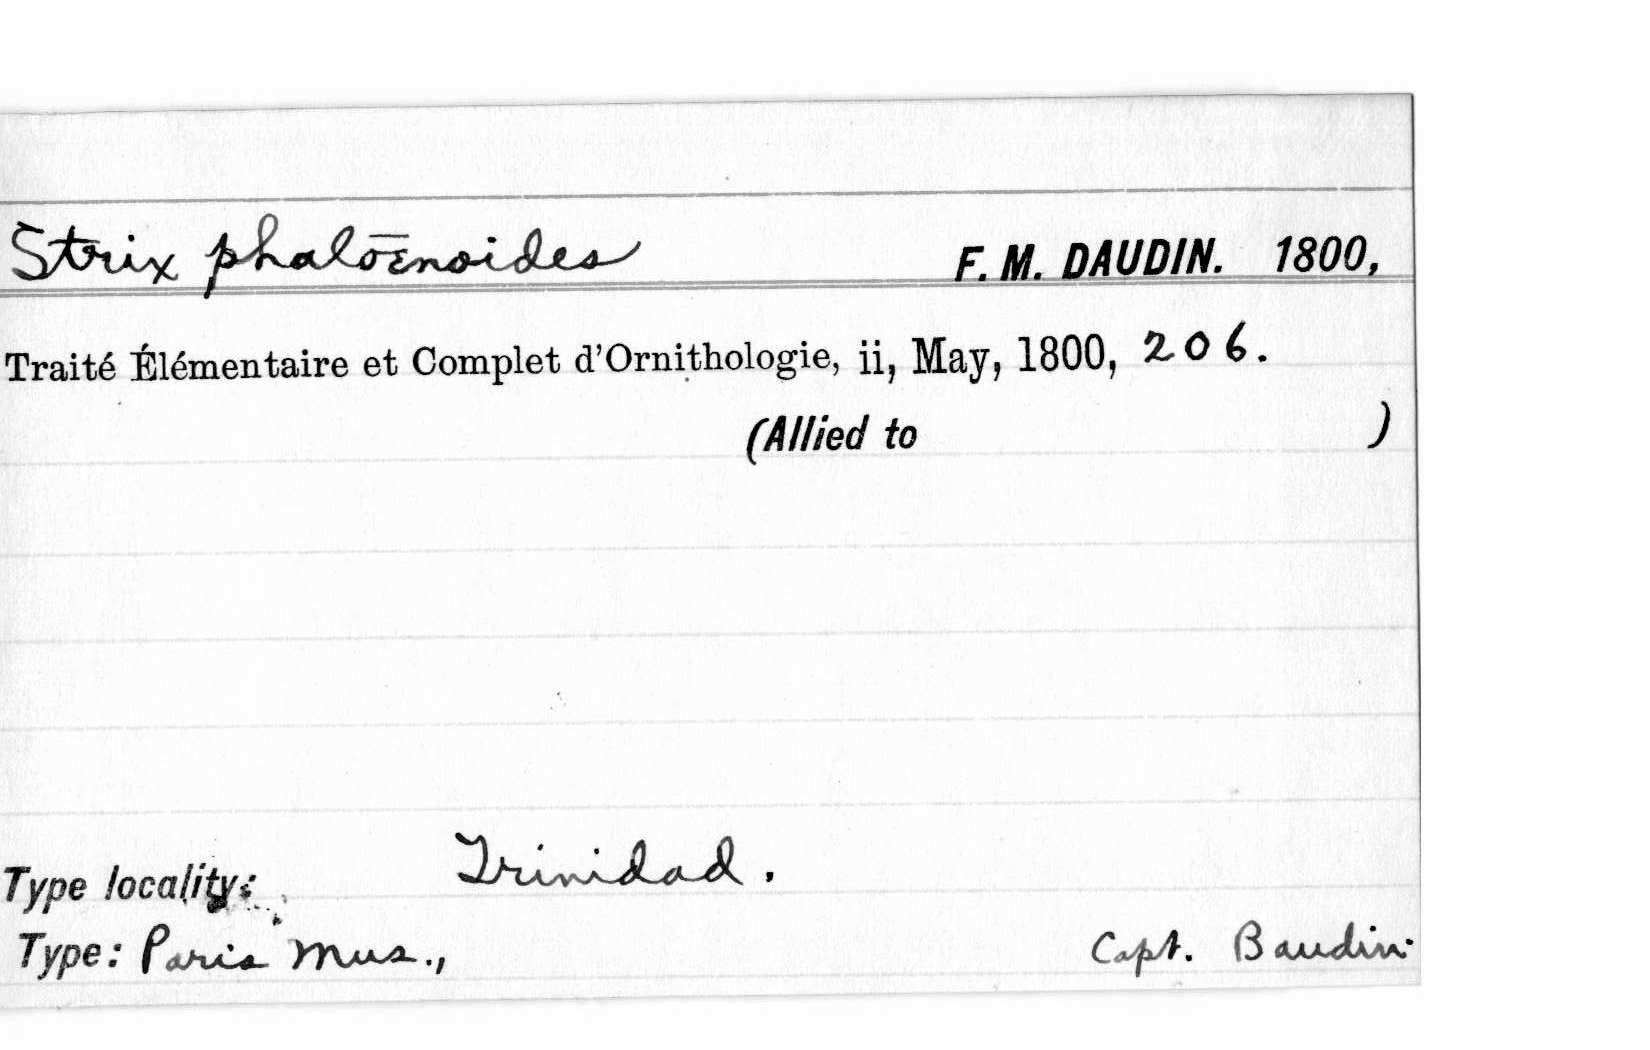 Strix phalœnoides F. M. DAUDIN. 1800,
Traité Élémentaire et Complet d'Ornithologie, ii, May, 1800, 206.
(Allied to )
Type locality: Trinidad.
Type: Paris Mus., Capt. Baudin.